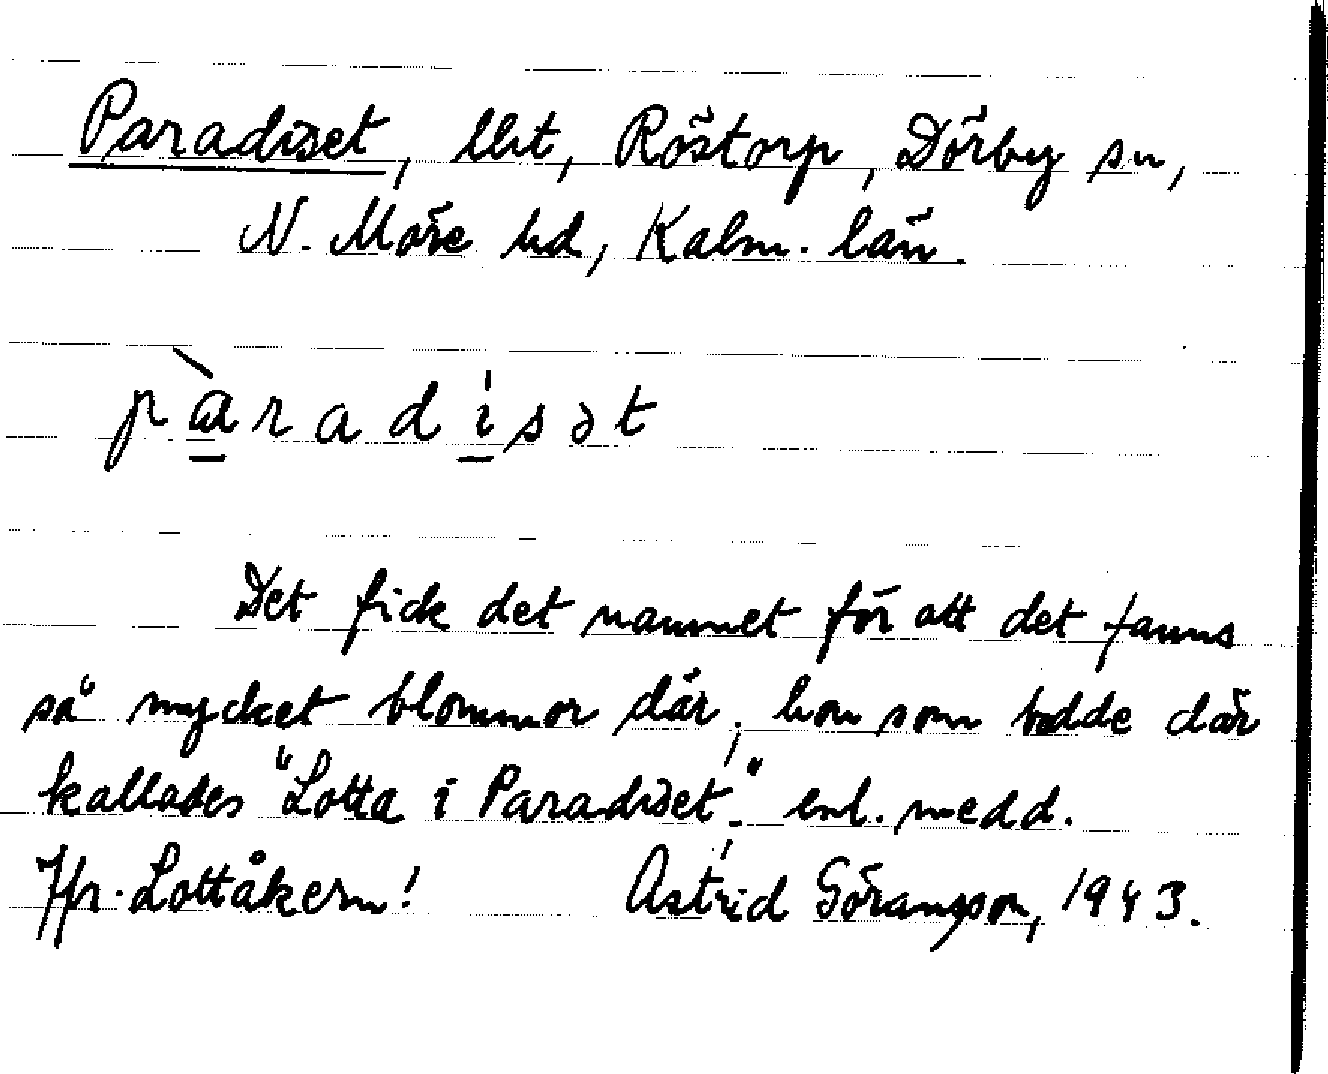 Paradiset, lht, Röstorp, Dörby sn,
N. Möre hd, Kalm. län.
pàradísət
Det fick det namnet för att det fanns
så mycket blommor där; hon som bodde där
kallades "Lotta i Paradiset"; enl. medd.
Jfr. Lottåkern! Astrid Göransson, 1943.